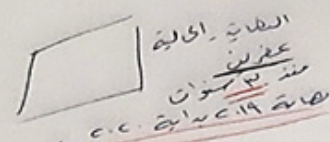 النهايات الحالية
عفرين
منذ ٣ سنوات
نهاية ٢٠١٩ بداية ٢٠٢٠